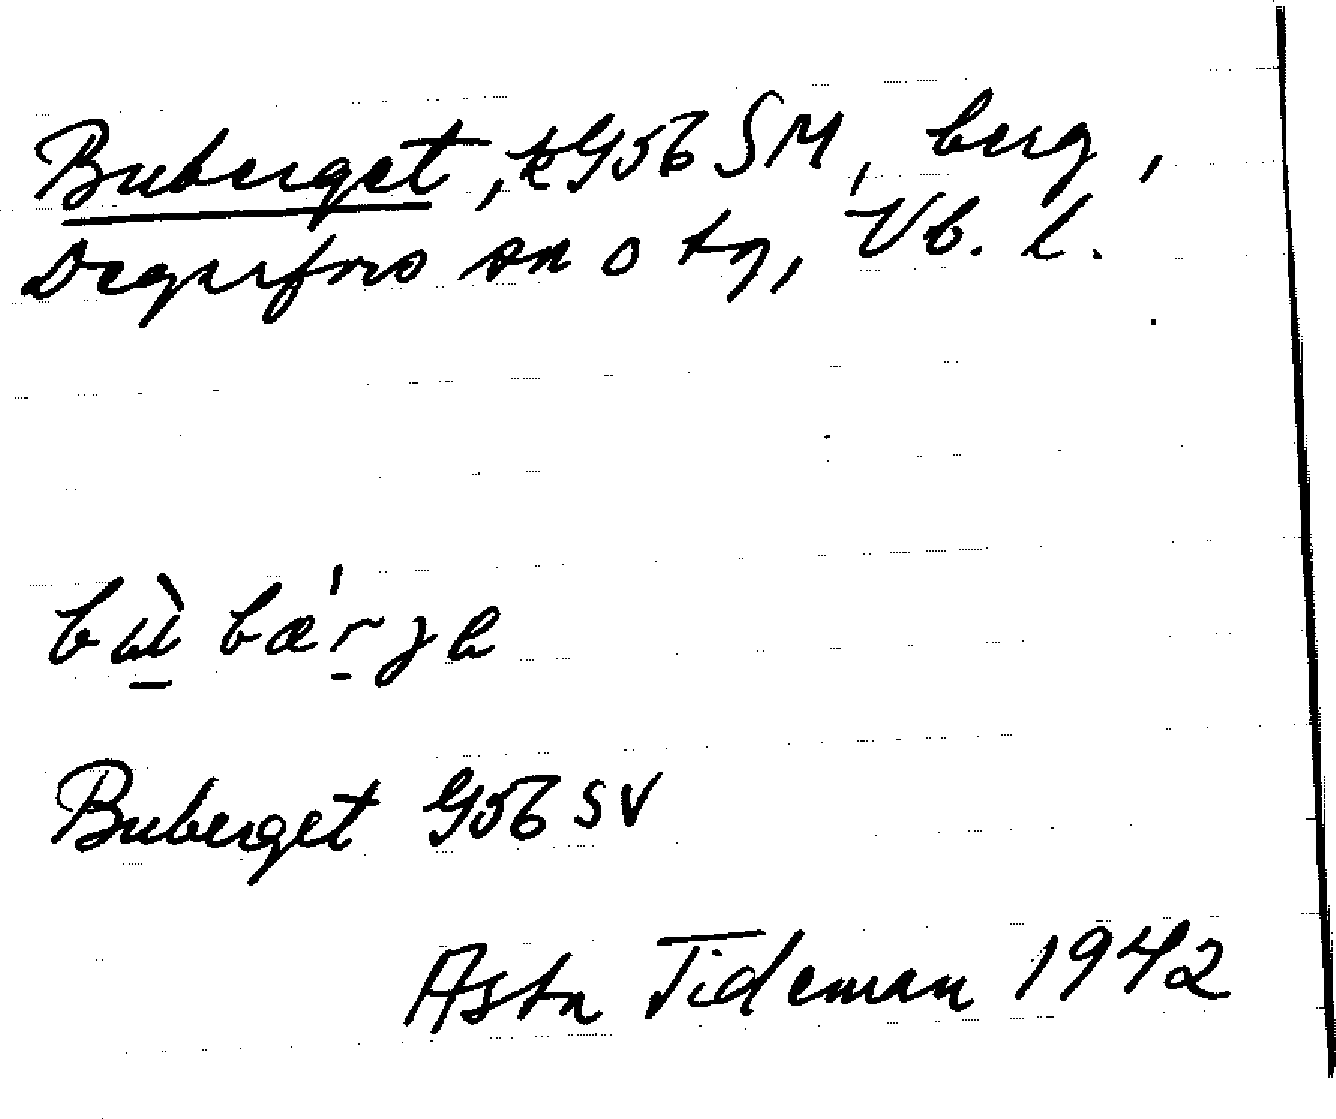 Buberget, kGo6 SM, berg,
Degerfors sn o tg, Vb. l.
bù̠ bæŕ̠ʒe
Buberget Go6 SV
Asta Tideman 1942